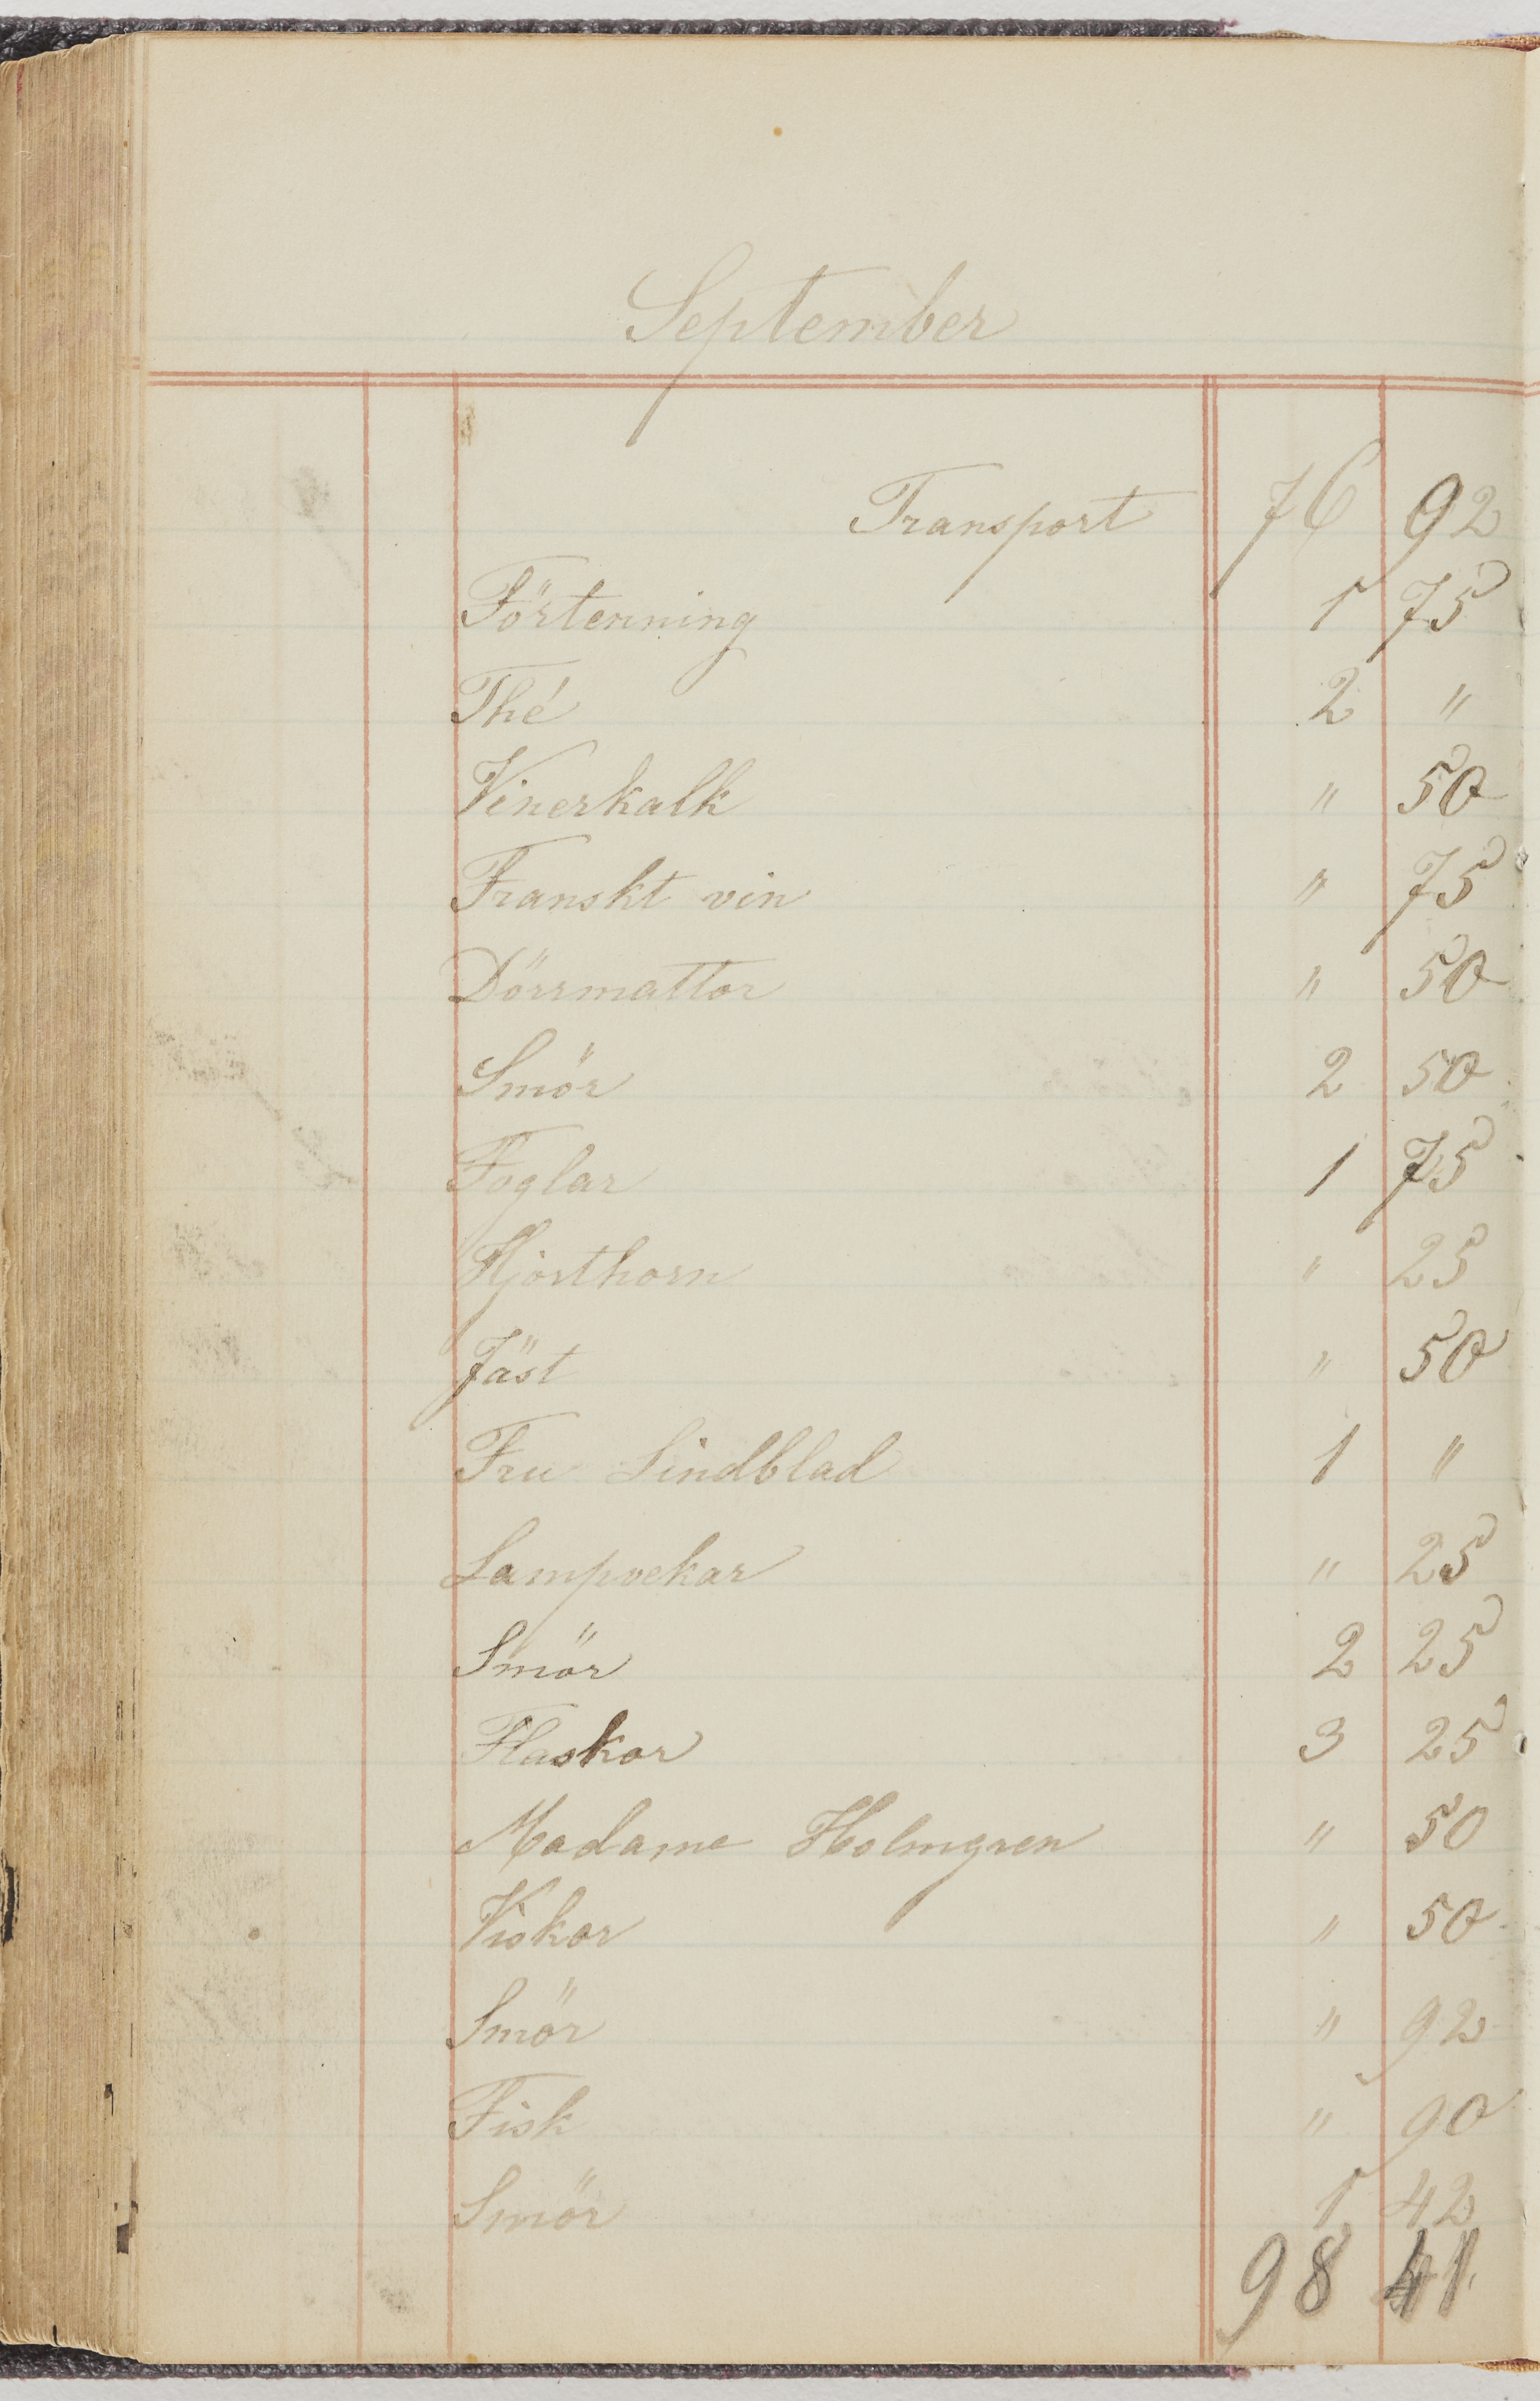 September
Transport 76 92
Förtenning 1 75
Thé 2 "
Vinerkalk " 50
Franskt vin " 75
Dörrmattor " 50
Smör 2 50
Foglar 1 75
Hjorthorn " 25
Jäst " 50
Fru Lindblad 1 "
Lampvekar " 25
Smör 2 25
Flaskor 3 25
Madame Holmgren " 50
Viskor " 50
Smör " 92
Fisk " 90
Smör 1 42
98 41